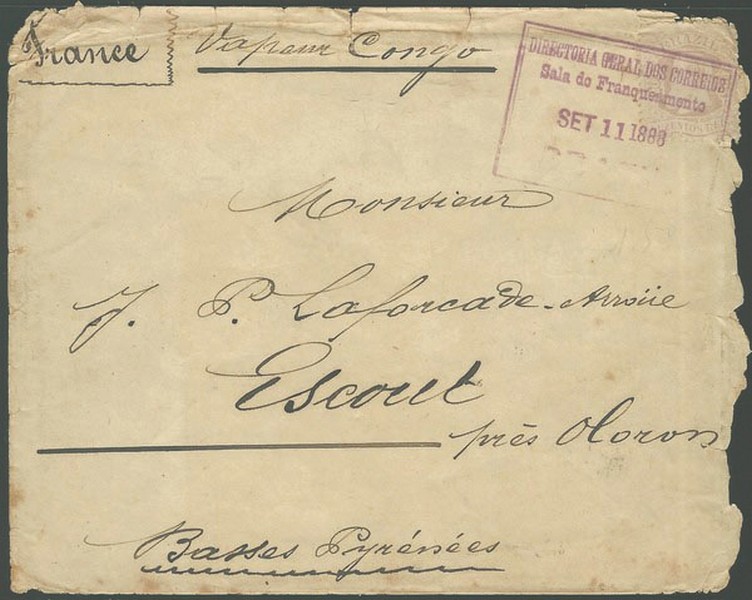 France
Vapeur Congo
DIRECTORIA GERAL DOS CORREIOS
Sala do Franqueamento
SET 11 1888
BRAZIL
Monsieur
J. P. Laforcade-Arroüe
Escout
près Oloron
Basses Pyrénées